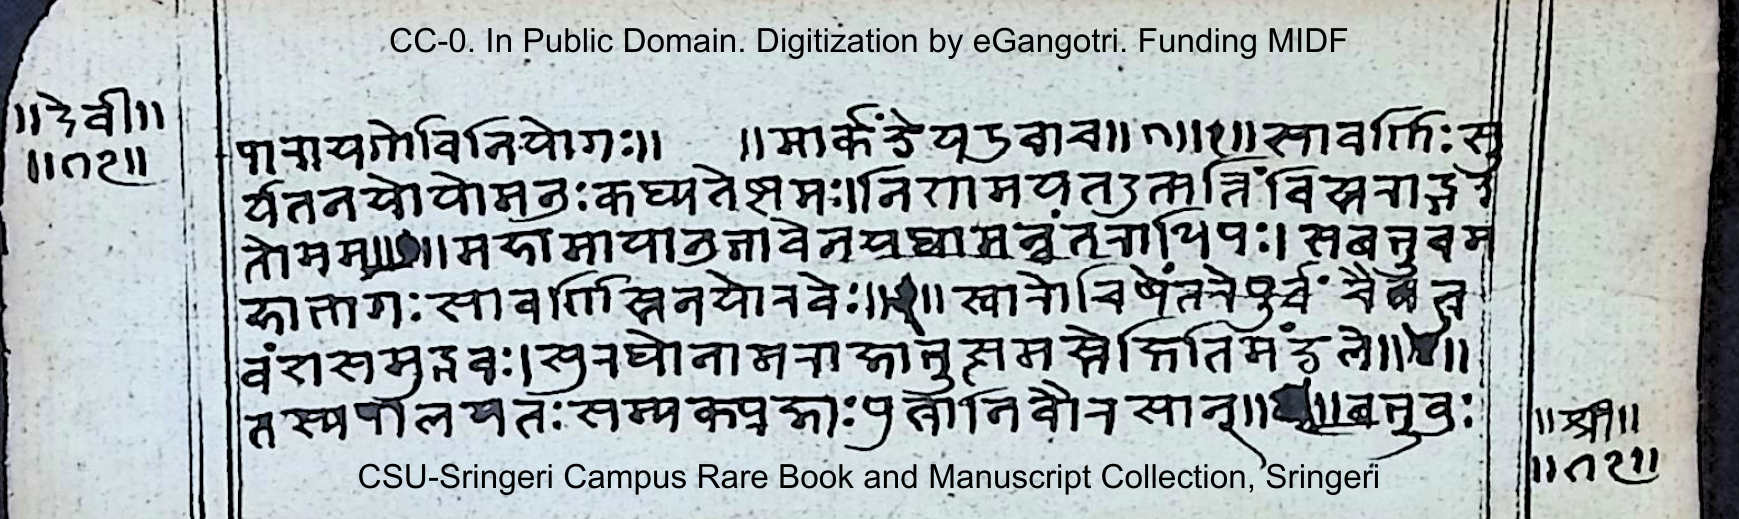 CC-0. In Public Domain. Digitization by eGangotri. Funding MIDF
॥देवी॥
पारायणे विनियोगः॥ ॥मार्कंडेय उवाच॥ १॥ सावर्णिः सु
र्यतनयो यो मनुः कथ्यतेष्टमः। निशामय तउत्पत्तिं विस्तराद्गद
तो मम॥ ॥महामायानुभावेन यथा मन्वंतराधिपः। स बभुव म
हाभागः सावर्णिस्तनयो रवेः॥ ॥स्वारोचिषेंतरे पुर्वं चैत्र
वंशसमुद्भवः। सुरथो नाम राजाभुत्समस्ते क्षितिमंडले॥ ॥
तस्य पालयतः सम्यक प्रजाः पुत्रानिवौरसान्॥ ॥बभुवुः
॥श्री॥
CSU-Sringeri Campus Rare Book and Manuscript Collection, Sringeri